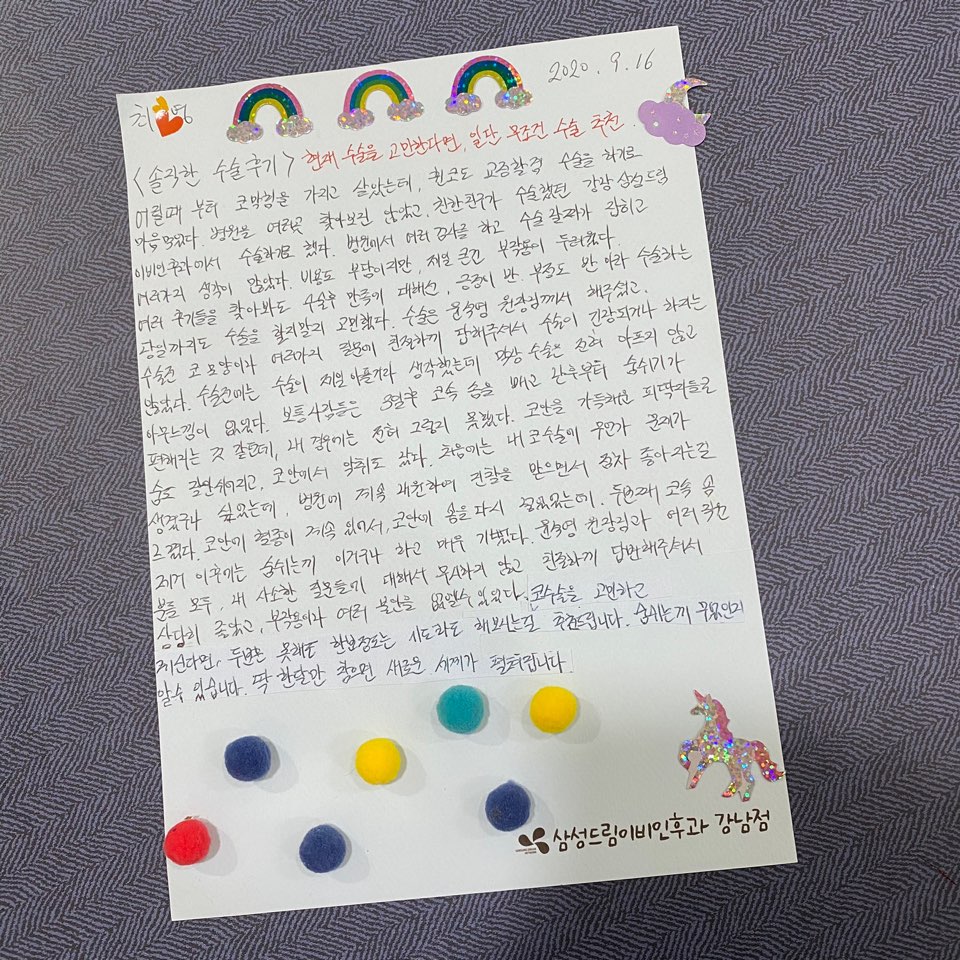 2020. 9. 16
최 영
<솔직한 수술후기> 현재 수술을 고민한다면, 일단, 무조건 수술 추천.
어릴때 부터 코막힘을 가지고 살았는데, 휜코도 교정할 겸 수술을 하기로
마음먹었다. 병원을 여러곳 찾아보진 않았고, 친한친구가 수술했던 강남 삼성드림
이비인후과에서 수술하기로 했다. 병원에서 여러 검사를 하고 수술 날짜가 잡히고
여러가지 생각이 많았다. 비용도 부담이지만, 제일 큰건 부작용이 두려웠다.
여러 후기들을 찾아봐도 수술후 만족에 대해선, 긍정이 반, 부정도 반 이라 수술하는
당일까지도 수술을 할지말지 고민했다. 수술은 윤석영 원장님께서 해주셨고,
수술전 코 모양이나 여러가지 질문에 친절하게 답해주셔서 수술이 긴장되거나 하지는
않았다. 수술전에는 수술이 제일 아플거라 생각했는데 막상 수술은 전혀 아프지 않고
아무느낌이 없었다. 보통사람들은 3일후 코속 솜을 빼고 난후부터 숨쉬기가
편해지는 것 같던데, 내 경우에는 전혀 그렇지 못했다. 코안을 가득채운 피딱지들로
숨도 잘안쉬어지고, 코안에서 악취도 났다. 처음에는 내 코수술이 무언가 문제가
생겼구나 싶었는데, 병원에 계속 내원하여 진찰을 받으면서 점차 좋아지는걸
느꼈다. 코안에 혈종이 계속 있어서, 코안에 솜을 다시 넣었었는데, 두번째 코속 솜
제거 이후에는 숨쉬는게 이거구나 하고 매우 기뻤다. 윤석영 원장님과 여러 직원
분들 모두, 내 사소한 질문들에 대해서 무시하지 않고 친절하게 답변해주셔서
상당히 좋았고, 부작용이나 여러 불안을 없앨수 있었다. 코수술을 고민하고
계신다면, 두번은 못해도 한번정도는 시도라도 해보시는걸 추천드립니다. 숨쉬는게 무엇인지
알수 있습니다. 딱 한달만 참으면 새로운 세계가 펼쳐집니다.
삼성드림이비인후과 강남점